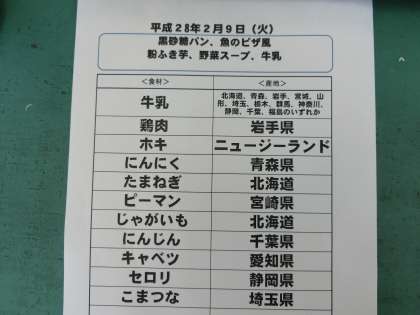 平成28年2月9日（火）
黒砂糖パン、魚のピザ風
粉ふき芋、野菜スープ、牛乳
＜食材＞ ＜産地＞
牛乳 北海道、青森、岩手、宮城、山
形、埼玉、栃木、群馬、神奈川、
静岡、千葉、福島のいずれか
鶏肉 岩手県
ホキ ニュージーランド
にんにく 青森県
たまねぎ 北海道
ピーマン 宮崎県
じゃがいも 北海道
にんじん 千葉県
キャベツ 愛知県
セロリ 静岡県
こまつな 埼玉県